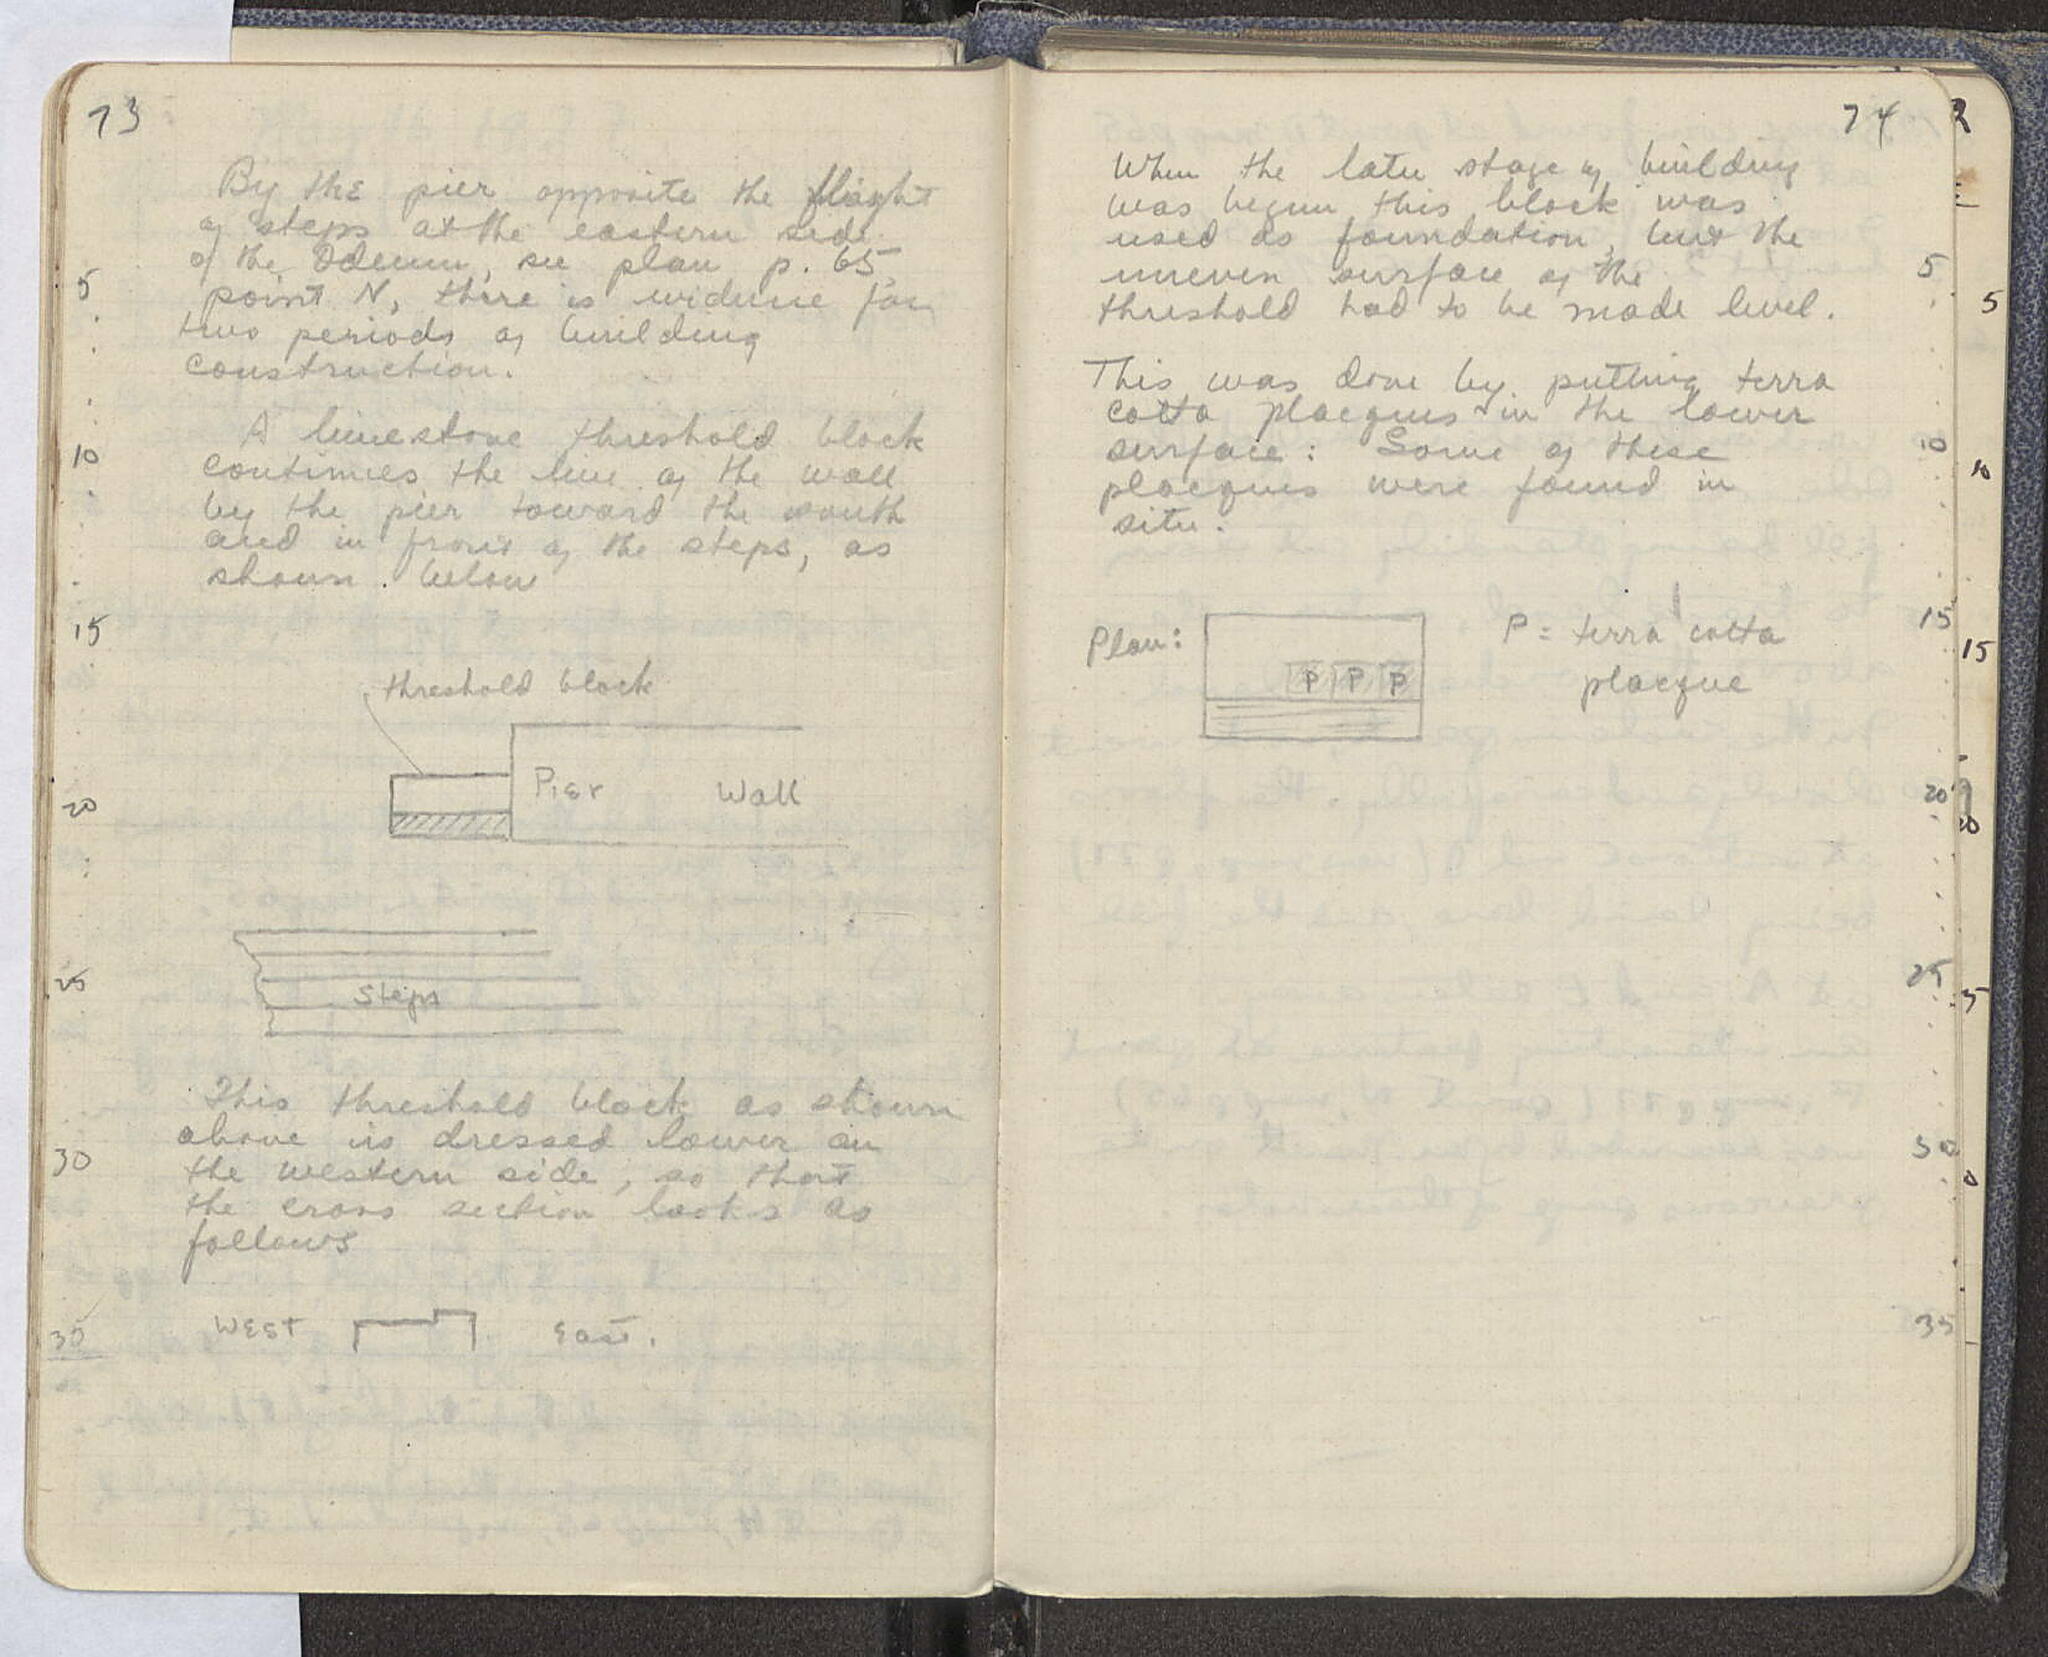 73
By the pier opposite the flight
of steps at the eastern side
of the Odeum, see plan p. 65,
5
point N, there is evidence for
two periods of building
construction.
A limestone threshold block
10
continues the line of the wall
by the pier toward the south
and in front of the steps, as
shown. below
15
threshold block
Pier Wall
20
25
Steps
This threshold block as shown
above is dressed lower on
30
the western side, so that
the cross section looks as
follows
West East.
35
74
When the later stage of building
was begun this block was
used as foundation, but the
uneven surface of the
5
threshold had to be made level.
5
This was done by putting terra
cotta placques in the lower
surface: Some of these
10
10
placques were found in
situ.
Plan: P = terra cotta
15
15
P P P placque
20
20
25
5
30
0
35